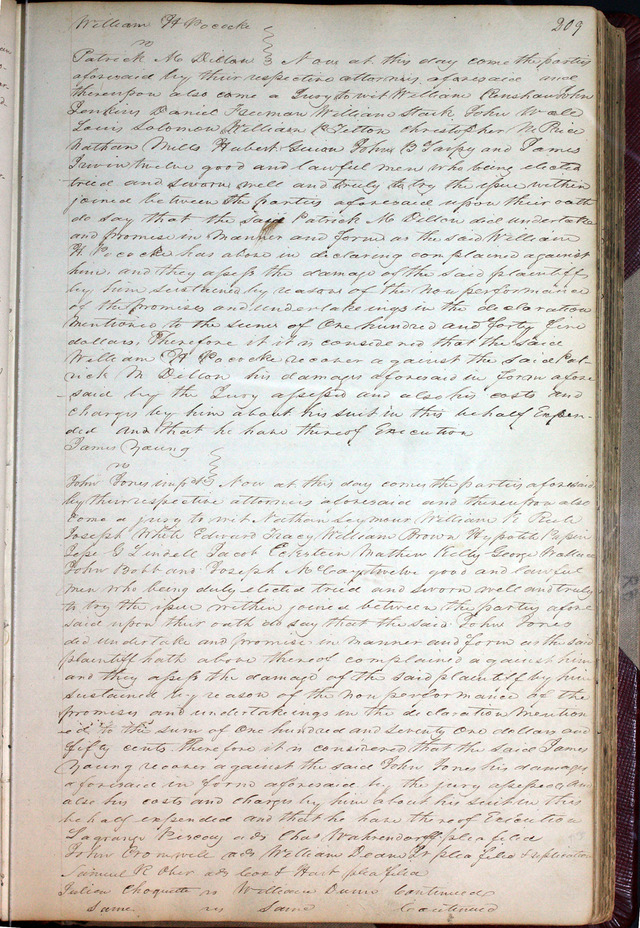 209
William H Pococke
vs
Patrick M Dillon Now at this day come the parties
aforesaid by their respective attornies aforesaid and
thereupon also come a Jury to wit William Renshaw John
Jenkins Daniel Freeman William Stark, John Wall
Louis Solomon, William R Tetton Christopher M Price
Nathan Mills Hubert John B Tarpy and James
Irwin twelve good and lawful men who being elected
tried and sworn well and truly to try the issue within
joined between the parties aforesaid upon their oath
do say that the said Patrick M Dillon did undertake
and promise in manner and form as the said William
H. Pococke has above in declaring complained against
him. and they assess the damage of the said plaintiff
by him sustained by reasons of the non performance
of the promises and undertakings in the declaration
mentioned to the sum of One hundred and forty five
dollars, Therefore it is considered that the said
William H Pococke recover against the said Pat-
rick M Dillon his damages aforesaid in form afore
said by the Jury assessed and also his costs and
charges by him about his suit in this behalf Expen-
ded and that he have thereof Execution
James Young
vs
John Jones Now at this day comes the parties aforesaid
by their respective attornies aforesaid and thereupon also
come a jury to wit Nathan Seymour William K Rule
Joseph White Edward Tracy William Brown Hypolite Papin
Jesse G Lindell Jacob Eckstein Mathew Kelly George Wallace
John Bobb and Joseph twelve good and lawful
men who being duly elected tried and sworn well and truly
to try the issue within joined between the parties afore
said upon their oath do say that the said John Jones
did undertake and promise in manner and form as the said
plaintiff hath above thereof complained against him
and they assess the damage of the said plaintiff by him
sustained by reason of the non performance of the
promises and undertakings in the declaration mention
ed to the sum of One hundred and seventy One dollars and
fifty cents therefore it is considered that the said James
Young recover against the said John Jones his damages
aforesaid in form aforesaid by the jury assessed and
also his costs and charges by him about his suit in this
behalf expended and that he have thereof Execution
Lagrange ads Chas Wahrendorff plea filed
John Cromwell ads William Dean plea filed & replication
Samuel R Ober ads Coo & Hart plea filed
Julien Choquette vs William Dunn Continued
Same vs Same Continued